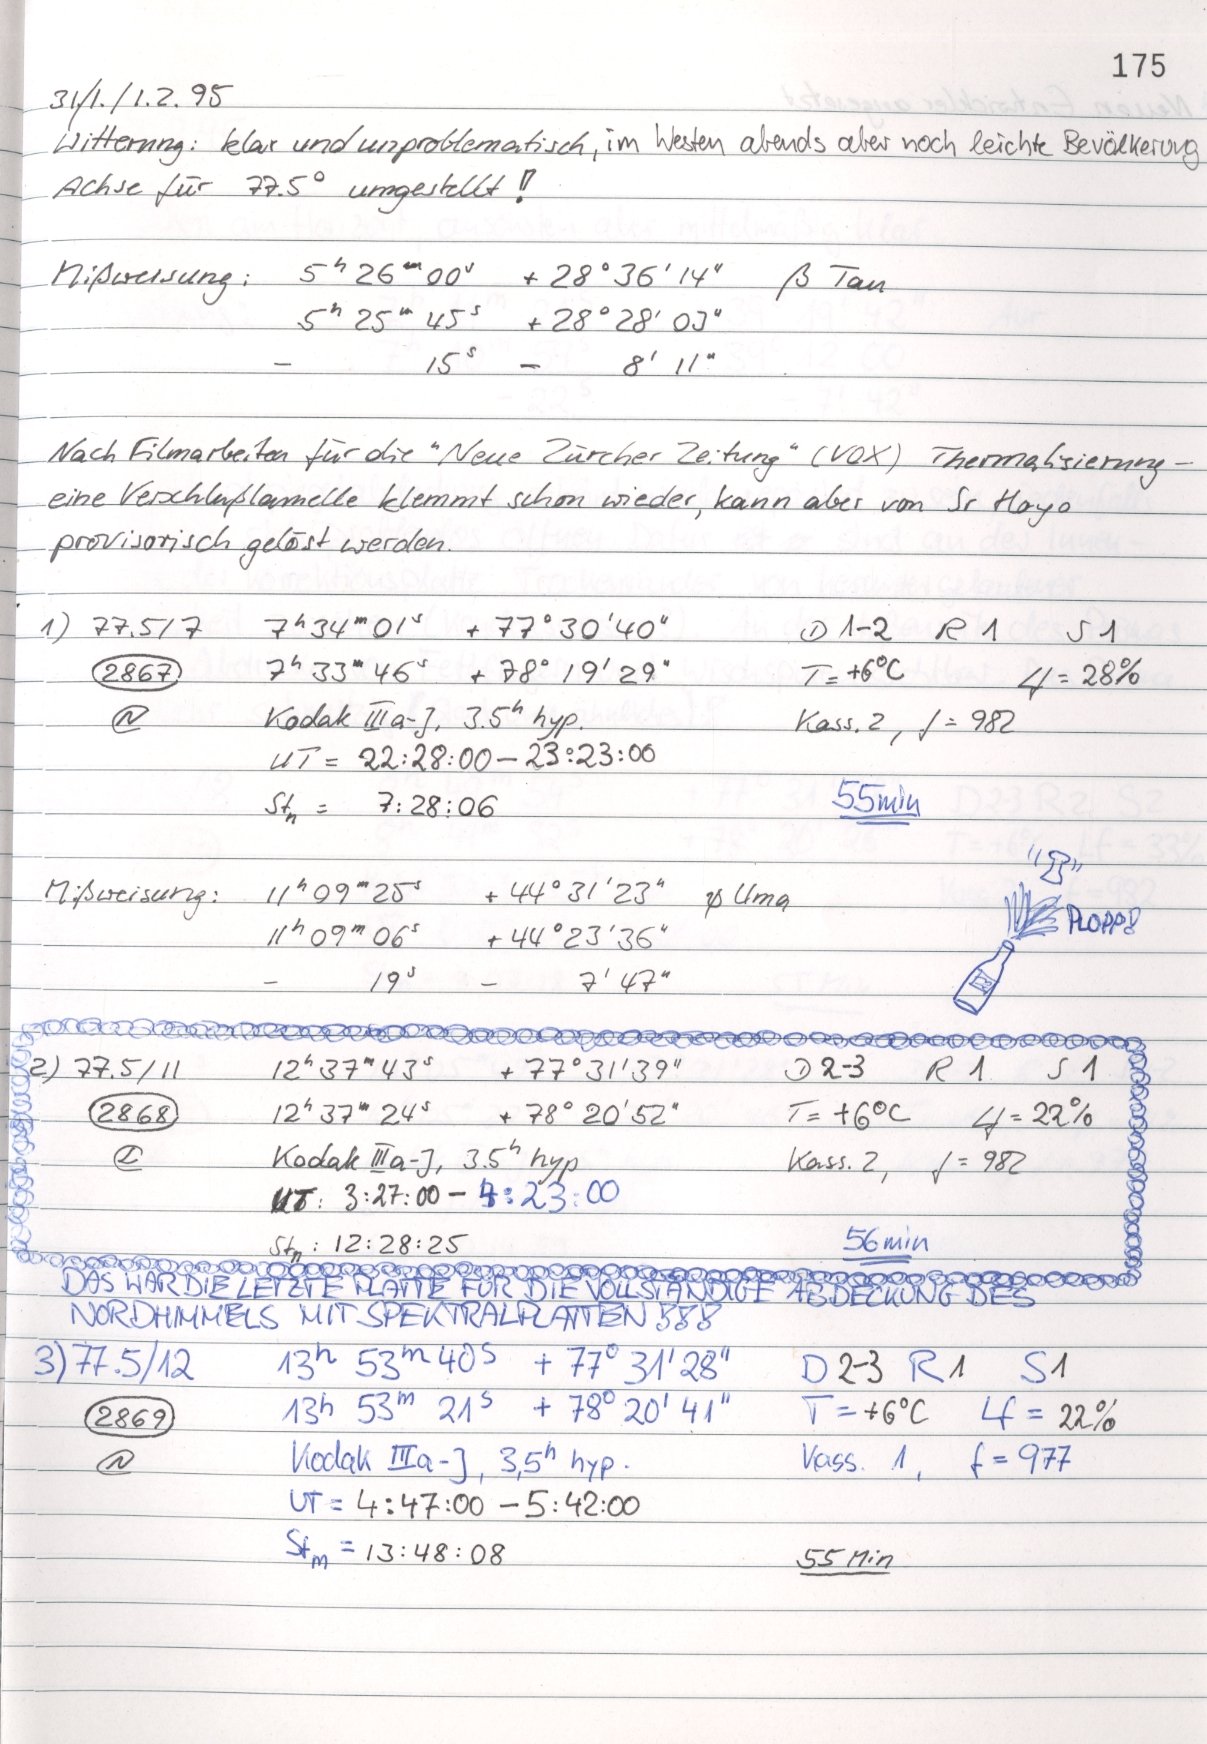 175
31/1./1.2.95
Witterung: klar und unproblematisch, im Westen abends aber noch leichte Bevölkerung
Achse für 77.5° umgestellt!
Mißweisung: 5ʰ 26ᵐ 00ˢ + 28° 36' 14" β Tau
5ʰ 25ᵐ 45ˢ + 28° 28' 03"
- 15ˢ - 8' 11"
Nach Filmarbeiten für die "Neue Zürcher Zeitung" (VOX) Thermalisierung -
eine Verschlußlamelle klemmt schon wieder, kann aber von Sr Hoyo
provisorisch gelöst werden.
1) 77.5/7 7ʰ 34ᵐ 01ˢ + 77° 30' 40" D 1-2 R 1 S 1
2867 7ʰ 33ᵐ 46ˢ + 78° 19' 29" T = +6°C Lf = 28%
N Kodak IIIa-J, 3.5ʰ hyp. Kass. 2, f = 982
UT = 22:28:00 - 23:23:00
Stₙ = 7:28:06 55min
Mißweisung: 11ʰ 09ᵐ 25ˢ + 44° 31' 23" ψ Uma
11ʰ 09ᵐ 06ˢ + 44° 23' 36" PLOPP!
- 19ˢ - 7' 47"
2) 77.5/11 12ʰ 37ᵐ 43ˢ + 77° 31' 39" D 2-3 R 1 S 1
2868 12ʰ 37ᵐ 24ˢ + 78° 20' 52" T = +6°C Lf = 22%
Kodak IIIa-J, 3.5ʰ hyp Kass. 2, f = 982
UT: 3:27:00 - 4:23:00
Stₙ: 12:28:25 56min
DAS WAR DIE LETZTE PLATTE FÜR DIE VOLLSTÄNDIGE ABDECKUNG DES
NORDHIMMELS MIT SPEKTRALPLATTEN !!!
3) 77.5/12 13ʰ 53ᵐ 40ˢ + 77° 31' 28" D 2-3 R 1 S 1
2869 13ʰ 53ᵐ 21ˢ + 78° 20' 41" T = +6°C Lf = 22%
N Kodak IIIa-J, 3,5ʰ hyp. Kass. 1, f = 977
UT = 4:47:00 - 5:42:00
Stₘ = 13:48:08 55 Min